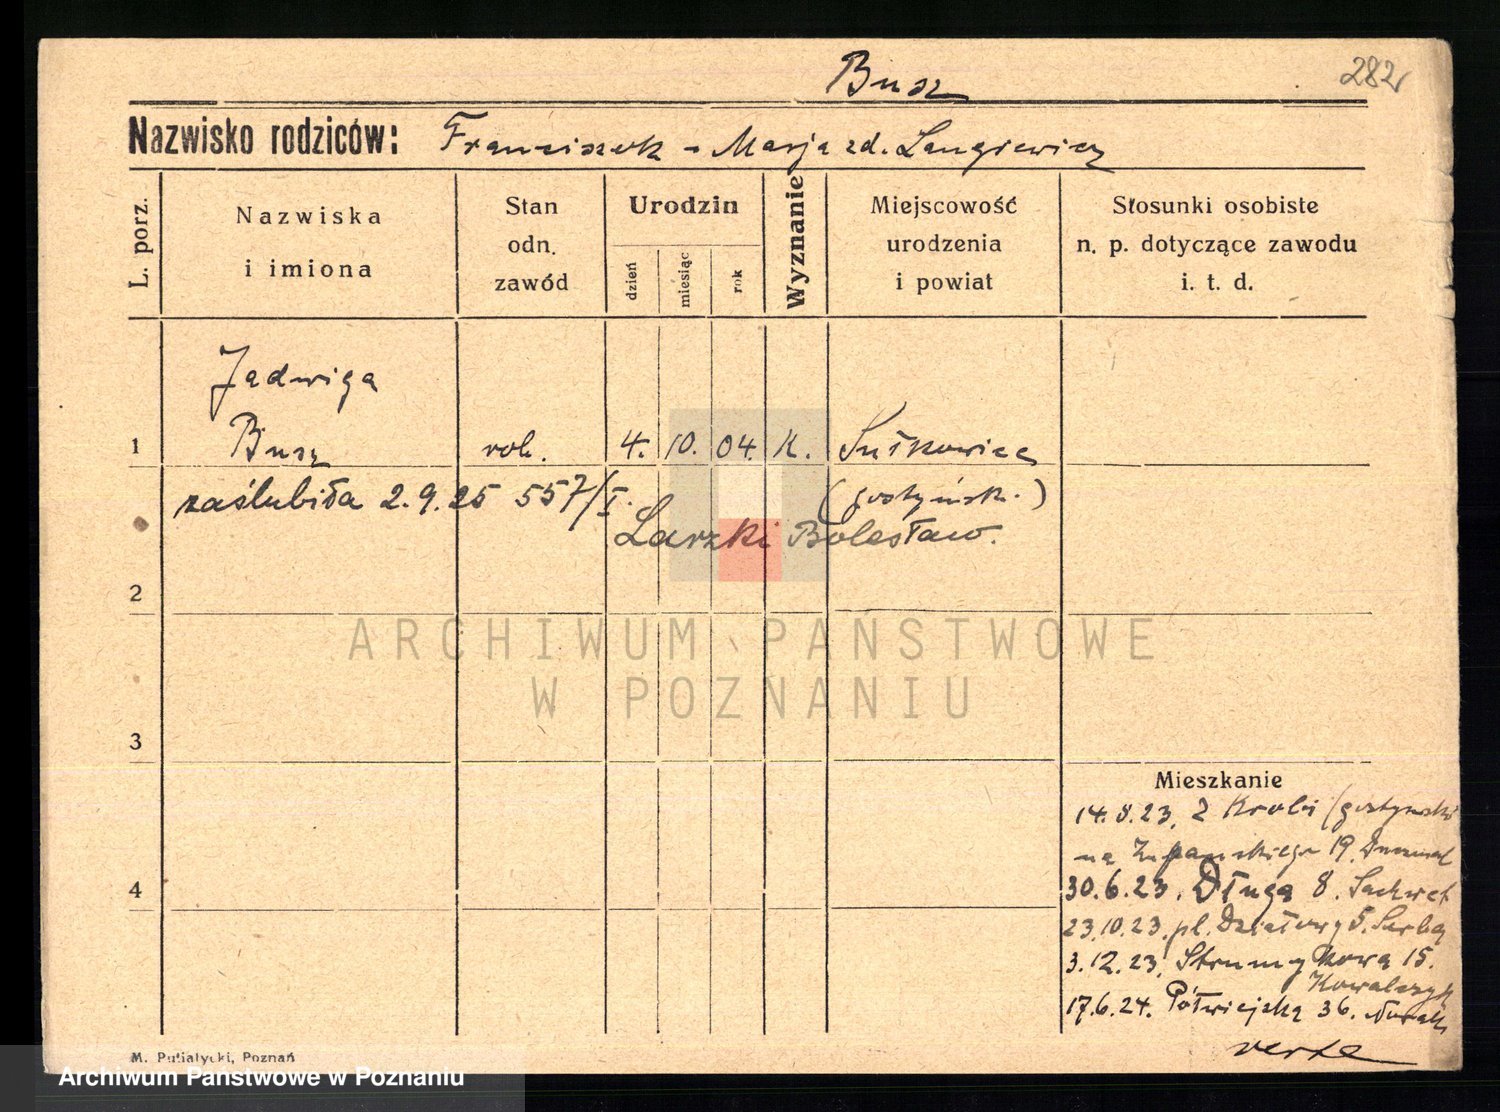 Busz
282
Nazwisko rodziców: Franciszek - Marja zd. Langiewicz
L. porz.
Nazwiska i imiona
Stan odn. zawód
Urodzin
dzień
miesiąc
rok
Wyznanie
Miejscowość urodzenia i powiat
Stosunki osobiste n. p. dotyczące zawodu i. t. d.
Jadwiga
1 Busz rob. 4. 10. 04. K. Sułkowice
zaślubiła 2.9.25 557/I. (gostyńsk.)
Larzki Bolesław.
2
ARCHIWUM PAŃSTWOWE
W POZNANIU
3
Mieszkanie
14.8.23. Z Krobi (gostyński
na Żupańskiego 19.
4
30.6.23. Długa 8.
23.10.23. pl. Działowy 5.
3.12.23. Strumykowa 15.
Kowalczyk
17.6.24. Półwiejska 36. Nowak
verte
M. Putiatycki, Poznań
Archiwum Państwowe w Poznaniu